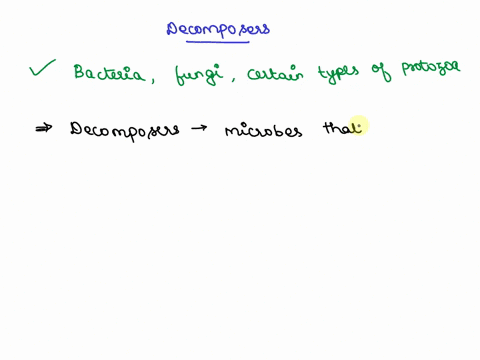 Decomposers
✓ Bacteria, fungi, certain types of protozoa
⇒ Decomposers → microbes that